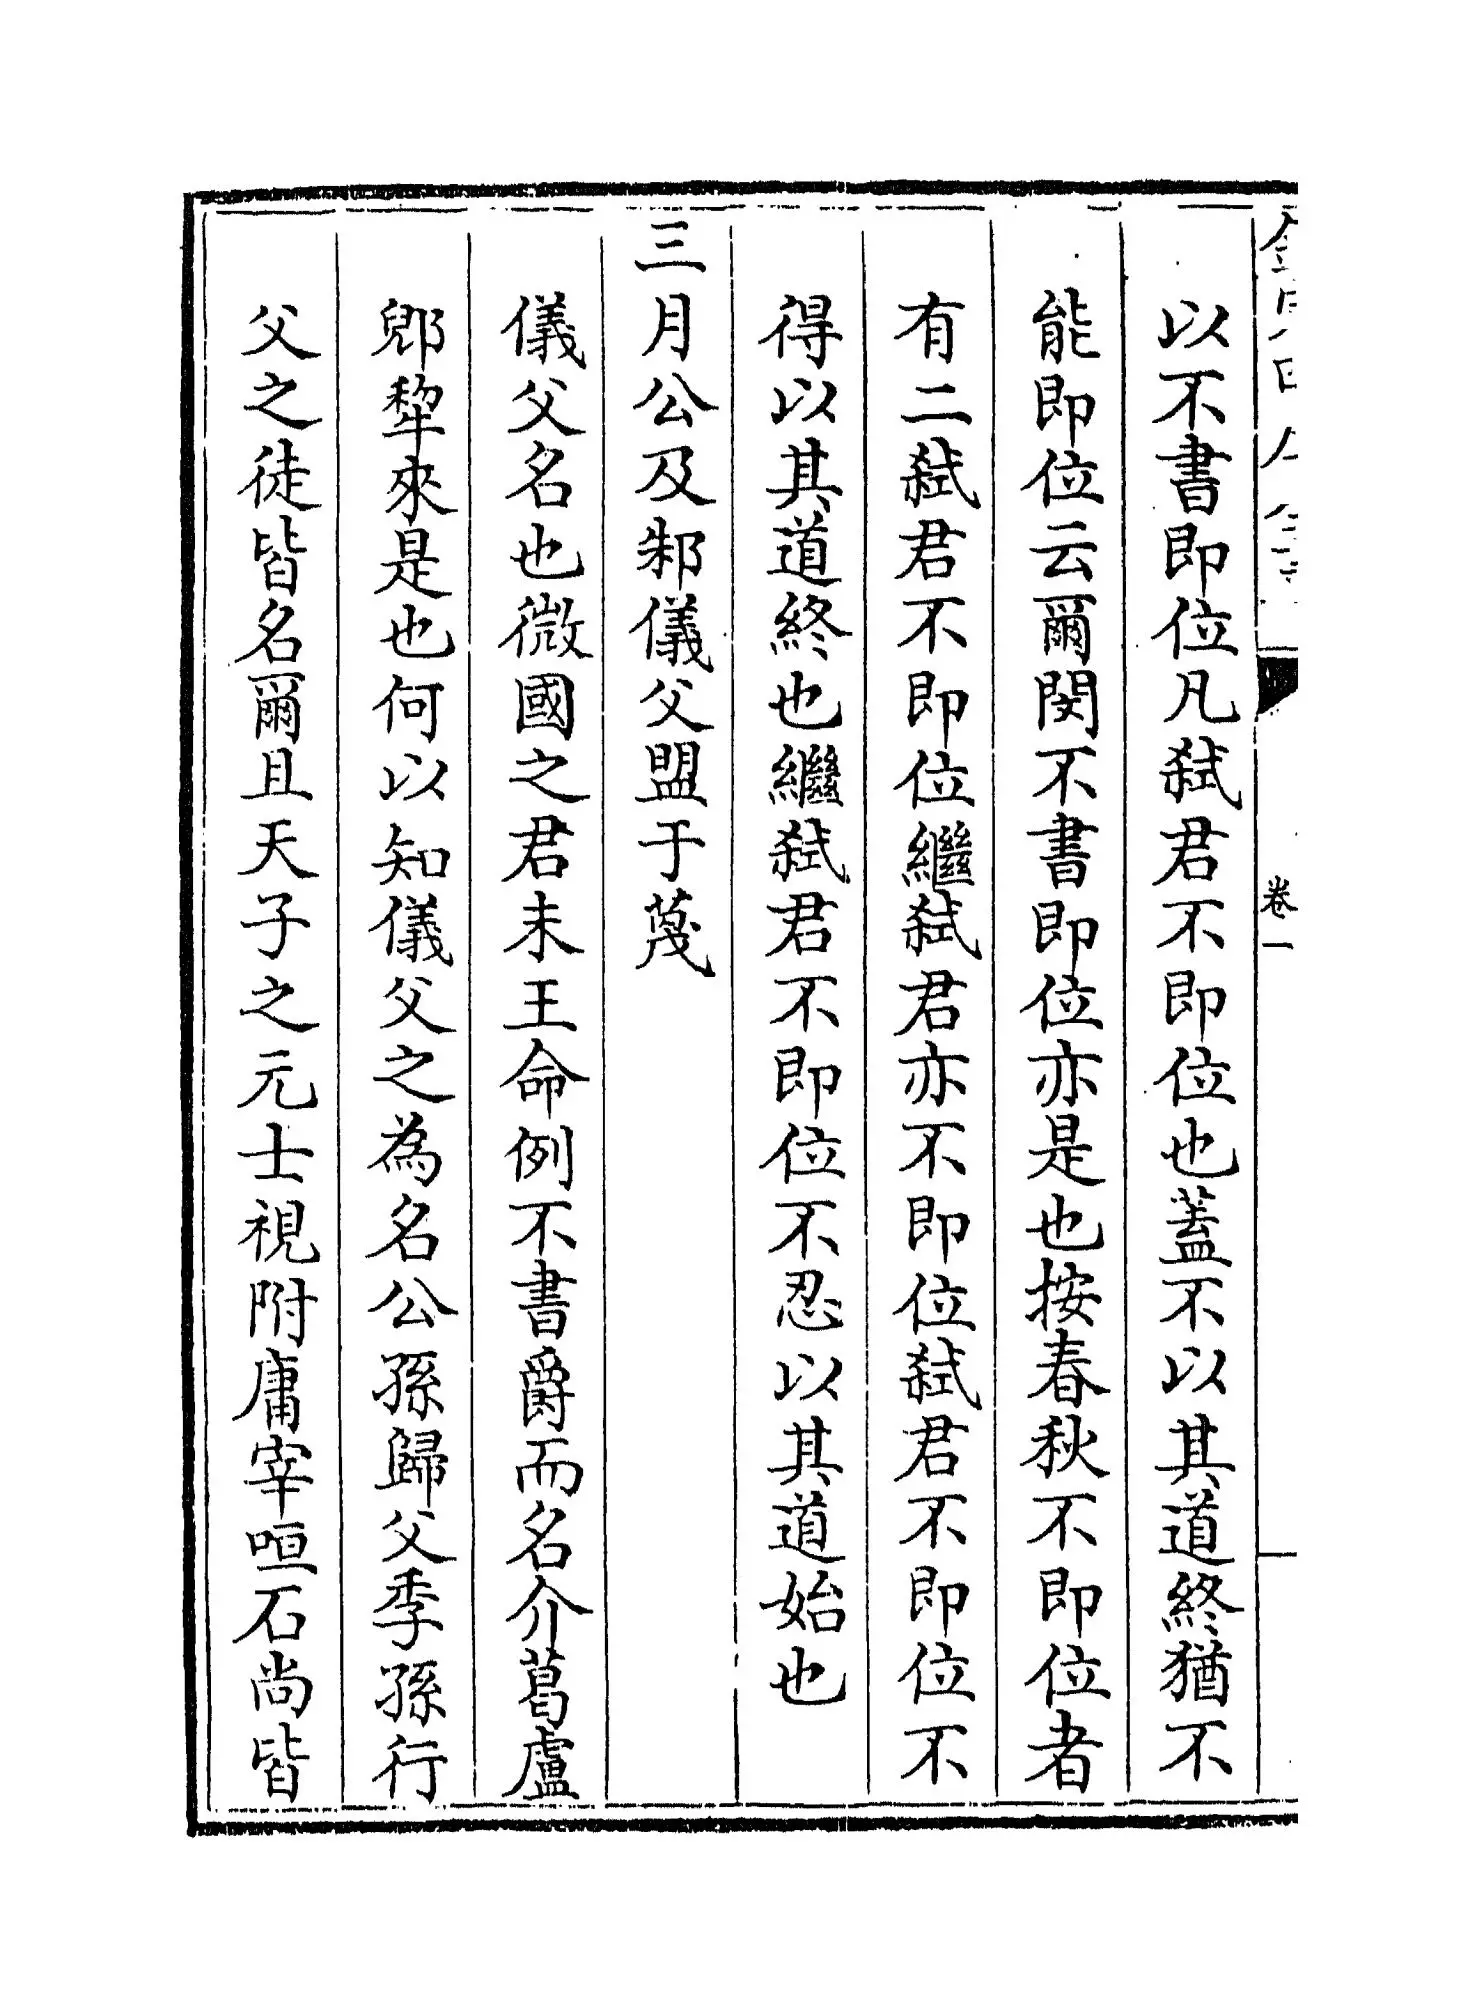 以不書即位凡弑君不即位也蓋不以其道終猶不
能即位云爾閔不書即位亦是也按春秋不即位者
有二弑君不即位繼弑君亦不即位弑君不即位不
得以其道終也繼弑君不即位不忍以其道始也
三月公及邾儀父盟于蔑
儀父名也微國之君未王命例不書爵而名介葛盧
郳犂來是也何以知儀父之為名公孫歸父季孫行
父之徒皆名爾且天子之元士視附庸宰咺石尚皆
卷一